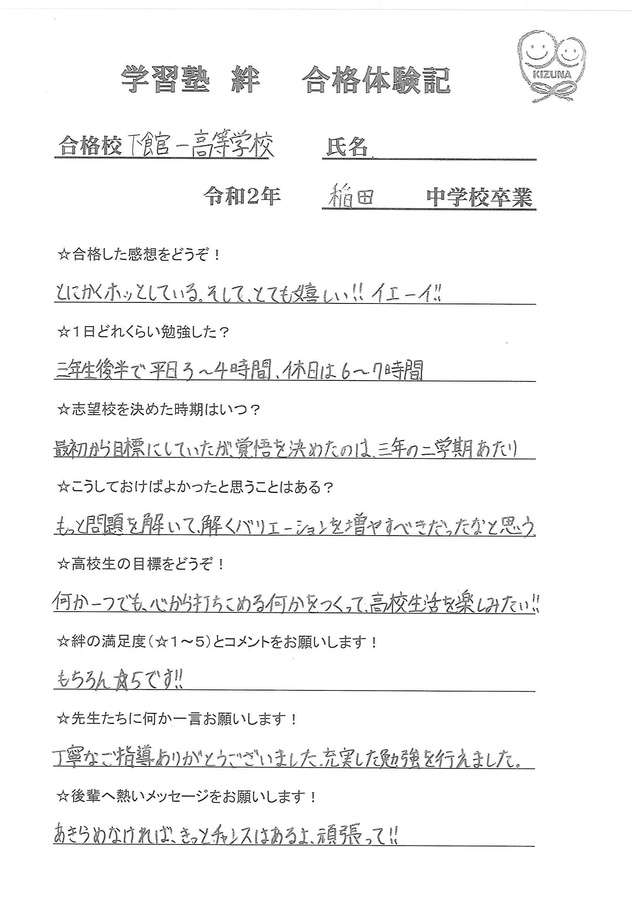 KIZUNA
学習塾 絆 合格体験記
合格校 下館一高等学校 氏名
令和2年 稲田 中学校卒業
☆合格した感想をどうぞ！
とにかくホッとしている。そして、とても嬉しい!! イエーイ!!
☆1日どれくらい勉強した？
三年生後半で平日3～4時間、休日は6～7時間
☆志望校を決めた時期はいつ？
最初から目標にしていたが、覚悟を決めたのは、三年の二学期あたり
☆こうしておけばよかったと思うことはある？
もっと問題を解いて、解くバリエーションを増やすべきだったなと思う。
☆高校生の目標をどうぞ！
何か一つでも、心から打ちこめる何かをつくって、高校生活を楽しみたい!!
☆絆の満足度（☆1～5）とコメントをお願いします！
もちろん☆5です!!
☆先生たちに何か一言お願いします！
丁寧なご指導ありがとうございました。充実した勉強を行えました。
☆後輩へ熱いメッセージをお願いします！
あきらめなければ、きっとチャンスはあるよ、頑張って!!